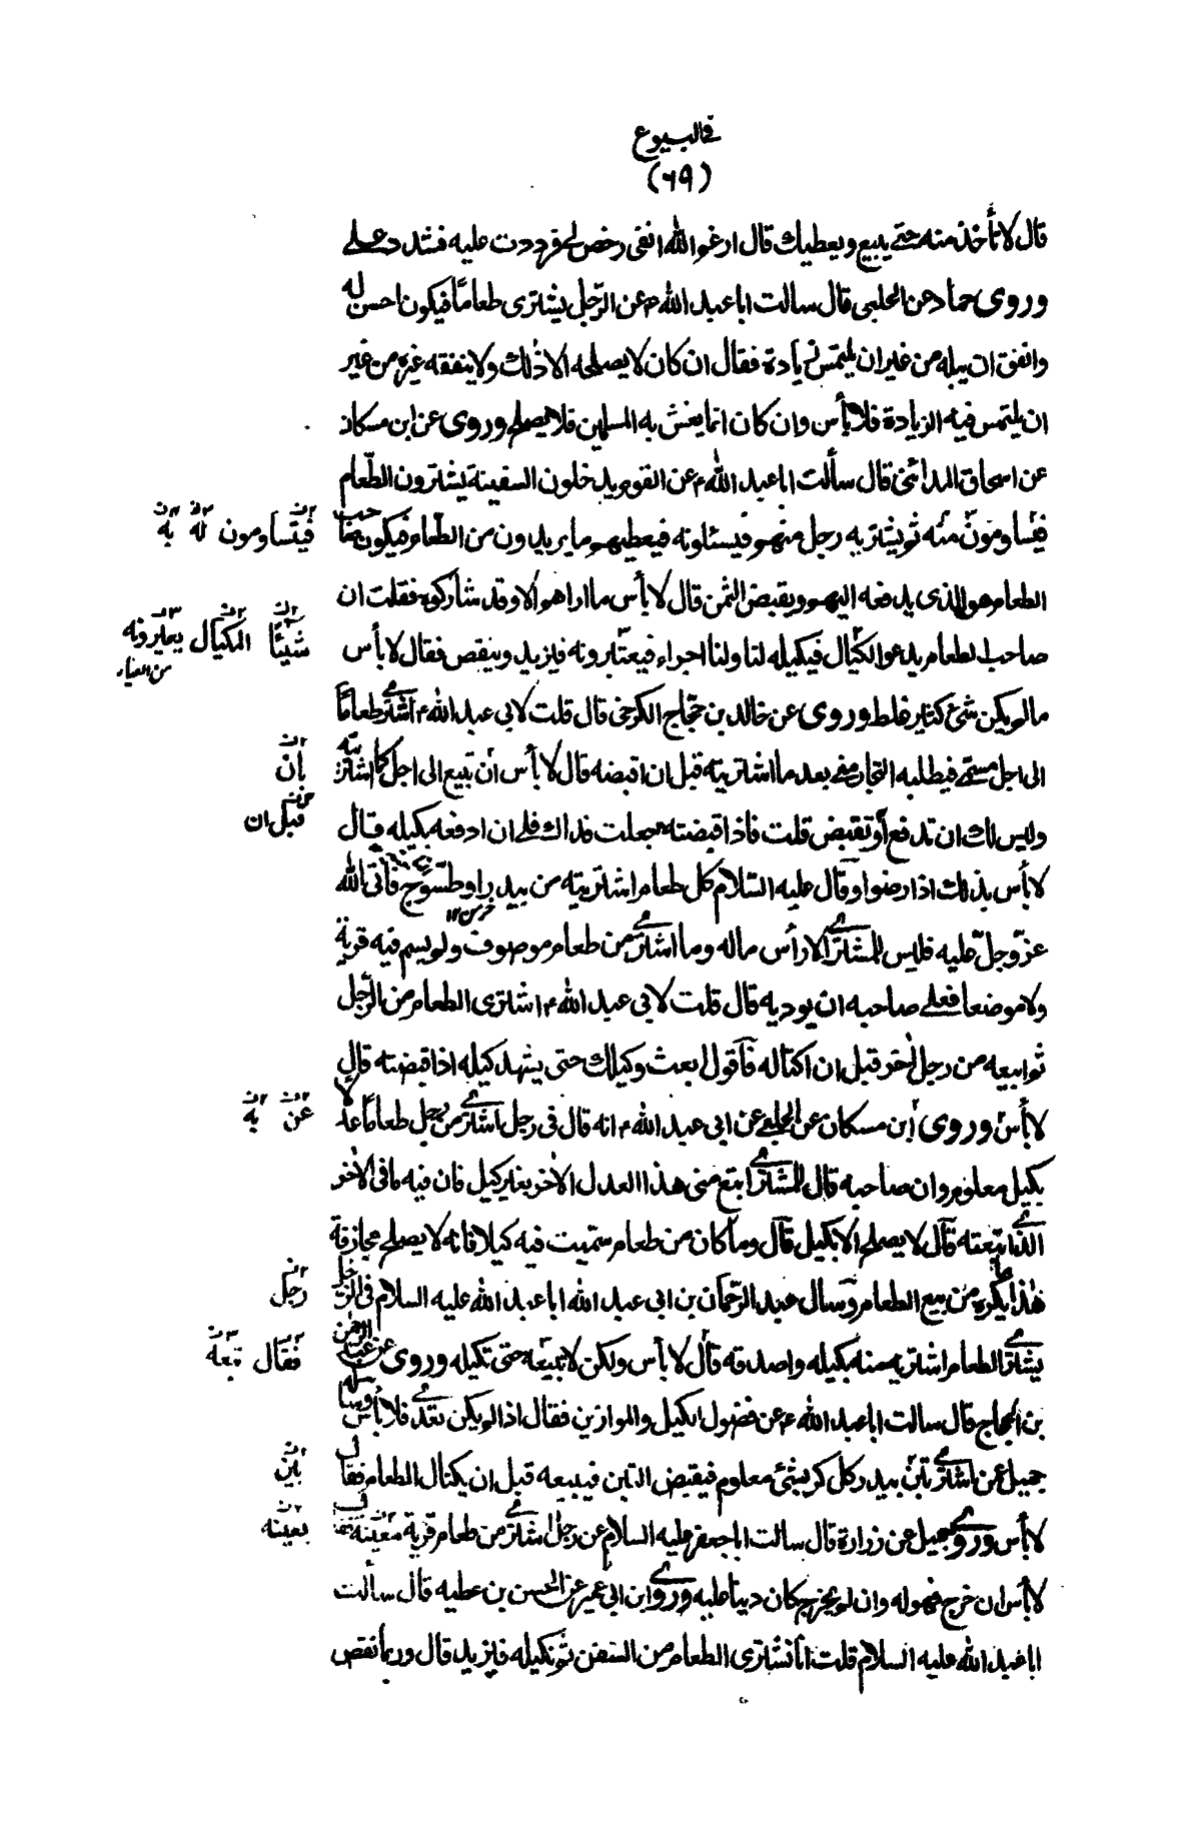 في البيوع
(۶۹)
قال لا تأخذ منه حتى يبيع ويعطيك قال ارغم الله انفى رخص لى فرددت عليه فشدد على
وروى حماد عن الحلبى قال سالت ابا عبد الله ع عن الرّجل يشترى طعامًا فيكون احسن له
وانفق ان يبله من غير ان يلتمس زيادة فقال ان كان لا يصلحه الا ذلك ولا ينفقه غيره من غير
ان يلتمس فيه الزيادة فلا بأس وان كان انما يغش به المسلمين فلا يصلح وروى عن ابن مسكان
عن اسحاق المدائنى قال سألت ابا عبد الله ع عن القوم يدخلون السفينة يشترون الطّعام
فيتساومون منه ثم يشتريه رجل منهم فيسئلونه فيعطيهم ما يريدون من الطّعام فيكون صاحب
فيتساومون له به
الطعام هو الذى يدفعه اليهم ويقبض الثمن قال لا بأس ما اراهم الا وقد شاركوه فقلت ان
صاحب الطعام يدعو الكيّال فيكيله لنا ولنا اجراء فيعتبرونه فيزيد وينقص فقال لا بأس
شيئًا المكيال يعيّرونه
مالم يكن شئ كثير غلط وروى عن خالد بن حجّاج الكرخى قال قلت لابى عبد الله ع اشترى طعامًا
الى اجل مسمّى فيطلبه التجار منى بعد ما اشتريته قبل ان اقبضه قال لا بأس ان تبيع الى اجل كما اشتريته
بان
وليس لك ان تدفع او تقبض قلت فاذا قبضته جعلت فداك فلى ان ادفعه بكيله قال
قبل ان
لا بأس بذلك اذا رضوا وقال عليه السّلام كل طعام اشتريته من بيدر او طسّوج فأتى الله
عزّ وجلّ عليه فليس للمشترى الا رأس ماله وما اشترى من طعام موصوف ولم يسم فيه قرية
ولا موضعا فعلى صاحبه ان يوديه قال قلت لابى عبد الله ع اشترى الطعام من الرّجل
ثم ابيعه من رجل اخر قبل ان اكتاله فأقول ابعث وكيلك حتى يشهد كيله اذا قبضته قال
لا بأس وروى ابن مسكان عن الحلبى عن ابى عبد الله ع انه قال فى رجل اشترى من رجل طعامًا عدلا
عن به
بكيل معلوم وان صاحبه قال للمشترى ابتع منى هذا العدل الاخر بغير كيل فان فيه ما فى الاخر
الذى ابتعته قال لا يصلح الا بكيل قال وما كان من طعام سمّيت فيه كيلا فانه لا يصلح مجازفة
هذا ما يكره من بيع الطعام وسأل عبد الرّحمان بن ابى عبد الله ابا عبد الله عليه السلام فى الرّجل
رجل
يشترى الطعام اشتريه منه بكيله واصدقه قال لا بأس ولكن لا تبيعه حتى تكيله وروى عن عبد الرحمن
فقال تبعه
بن الحجاج قال سالت ابا عبد الله ع عن فضول الكيل والموازين فقال اذا لم يكن تعدّى فلا بأس وسأله
جميل عن رجل اشترى تبن بيدر كل كر بشئ معلوم فيقبض التبن فيبيعه قبل ان يكتال الطعام فقال
تبن
لا بأس وروى جميل عن زرارة قال سالت ابا جعفر عليه السلام عن رجل اشترى من طعام قرية معيّنة فقال
بعينه
لا بأس ان خرج فهو له وان لم يخرج كان دينا عليه وروى ابن ابى عمير عن الحسن بن عطيه قال سألت
ابا عبد الله عليه السلام قلت انا نشترى الطعام من السفن ثم نكيله فيزيد قال وربما نقص